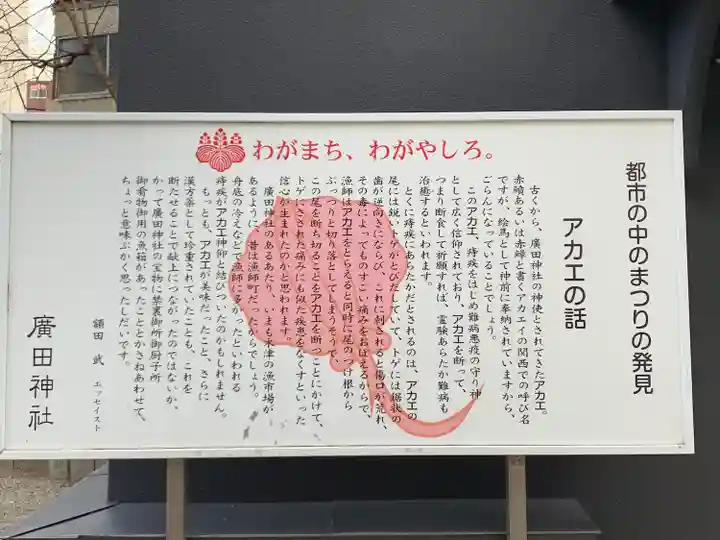 わがまち、わがやしろ。
都市の中のまつりの発見
アカエの話
古くから、廣田神社の神使とされてきたアカエ。
赤𫙩あるいは赤鱏と書くアカエイの関西での呼び名
ですが、絵馬として神前に奉納されていますから、
ごらんになっていることでしょう。
このアカエ、痔疾をはじめ難病悪疫の守り神
として広く信仰されており、アカエを断って、
つまり断食して祈願すれば、霊験あらたか難病も
治癒するといわれます。
とくに痔疾にあらたかだとされるのは、アカエの
尾には鋭いトゲがとびだしていて、トゲには鋸状の
歯が逆向きにならび、これに刺されると傷口が荒れ、
その毒によってものすごい痛みをおぼえるからで、
漁師はアカエをとらえると同時に尾のつけ根から
ぶっつりと切り落としてしまうそうで、
この尾を断ち切ることをアカエを断つことにかけて、
トゲにさされた痛みにも似た疾患をなくすといった
信心が生まれたのかと思われます。
廣田神社のあるあたり、いまも木津の魚市場が
あるように、昔は漁師町だったからでしょう。
舟底の冷えなどで漁師に多かったといわれる
痔疾がアカエ神仰と結びついたのかもしれません。
もっとも、アカエが美味だったこと、さらに
漢方薬として珍重されていたことも、これを
断たせることで献上につながったのではないか、
かって廣田神社の宝物に禁裏御所御厨子所
御肴物御用の魚箱があったこととかさねあわせて、
ちょっと意味ぶかく思ったしだいです。
額田 武 エッセイスト
廣田神社